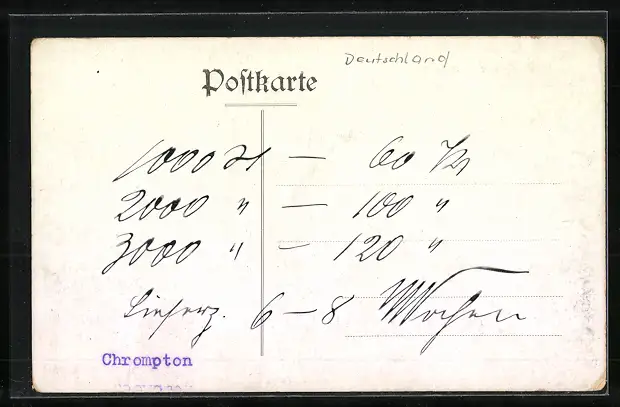 Deutschland
Postkarte
1000 St — 60 M
2000 " — 100 "
3000 " — 120 "
Lieferz. 6 – 8 Wochen
Chrompton